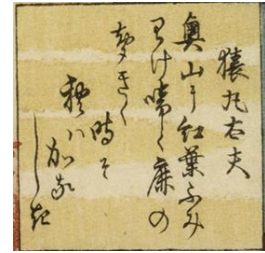 猿丸太夫
奥山に紅葉ふみ
わけ啼く鹿の
声きく
時そ
秋ハかな
しき